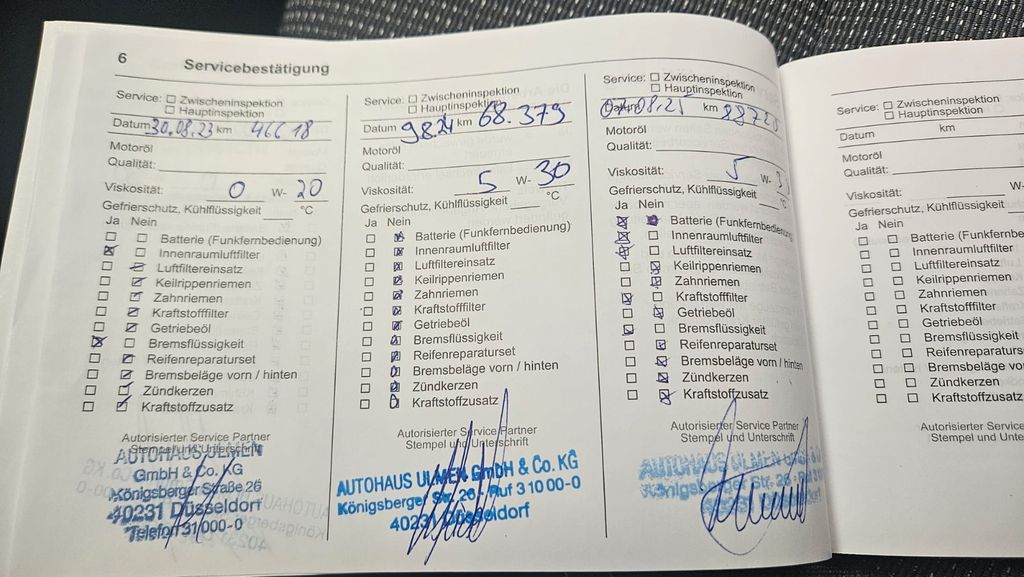 6
Servicebestätigung
Service: Zwischeninspektion
Hauptinspektion
Datum 30.08.23 km 46618
Motoröl
Qualität:
Viskosität: 0 W- 20
Gefrierschutz, Kühlflüssigkeit °C
Ja Nein
Batterie (Funkfernbedienung)
Innenraumluftfilter
Luftfiltereinsatz
Keilrippenriemen
Zahnriemen
Kraftstofffilter
Getriebeöl
Bremsflüssigkeit
Reifenreparaturset
Bremsbeläge vorn / hinten
Zündkerzen
Kraftstoffzusatz
Autorisierter Service Partner
Stempel und Unterschrift
AUTOHAUS ULMEN
GmbH & Co. KG
Königsberger Straße 26
40231 Düsseldorf
Telefon 31 000-0
Service: Zwischeninspektion
Hauptinspektion
Datum 9.8.24 km 68.379
Motoröl
Qualität:
Viskosität: 5 W- 30
Gefrierschutz, Kühlflüssigkeit °C
Ja Nein
Batterie (Funkfernbedienung)
Innenraumluftfilter
Luftfiltereinsatz
Keilrippenriemen
Zahnriemen
Kraftstofffilter
Getriebeöl
Bremsflüssigkeit
Reifenreparaturset
Bremsbeläge vorn / hinten
Zündkerzen
Kraftstoffzusatz
Autorisierter Service Partner
Stempel und Unterschrift
AUTOHAUS ULMEN GmbH & Co. KG
Königsberger Str. 26 - Ruf 3 10 00-0
40231 Düsseldorf
Service: Zwischeninspektion
Hauptinspektion
Datum 08.25 km
Motoröl
Qualität:
Viskosität: 5 W-
Gefrierschutz, Kühlflüssigkeit °C
Ja Nein
Batterie (Funkfernbedienung
Innenraumluftfilter
Luftfiltereinsatz
Keilrippenriemen
Zahnriemen
Kraftstofffilter
Getriebeöl
Bremsflüssigkeit
Reifenreparaturset
Bremsbeläge vorn / hinten
Zündkerzen
Kraftstoffzusatz
Autorisierter Service Partner
Stempel und Unterschrift
AUTOHAUS ULMEN
Königsberger Str. 26
Service: Zwischeninspektion
Hauptinspektion
Datum km
Motoröl
Qualität:
Viskosität: W-
Gefrierschutz, Kühlflüssigkeit
Ja Nein
Batterie (Funkfernbe
Innenraumluftfilter
Luftfiltereinsatz
Keilrippenriemen
Zahnriemen
Kraftstofffilter
Getriebeöl
Bremsflüssigkeit
Reifenreparaturs
Bremsbeläge vo
Zündkerzen
Kraftstoffzusatz
Autorisierter Servic
Stempel und Unte